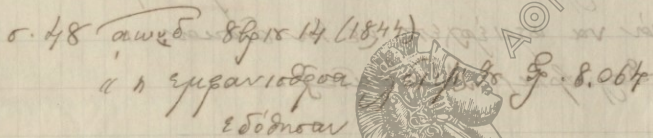 σ. 48 αωμδ 8βρίου 14 (1844)
" η εμφανισθείσα Φ. 8.064
εδόθησαν
ΑΘΗ